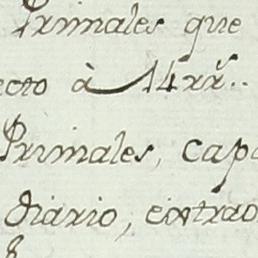 Primales que
ecto à 14 rr.ˢ..
Primales, capa
diario, extrao